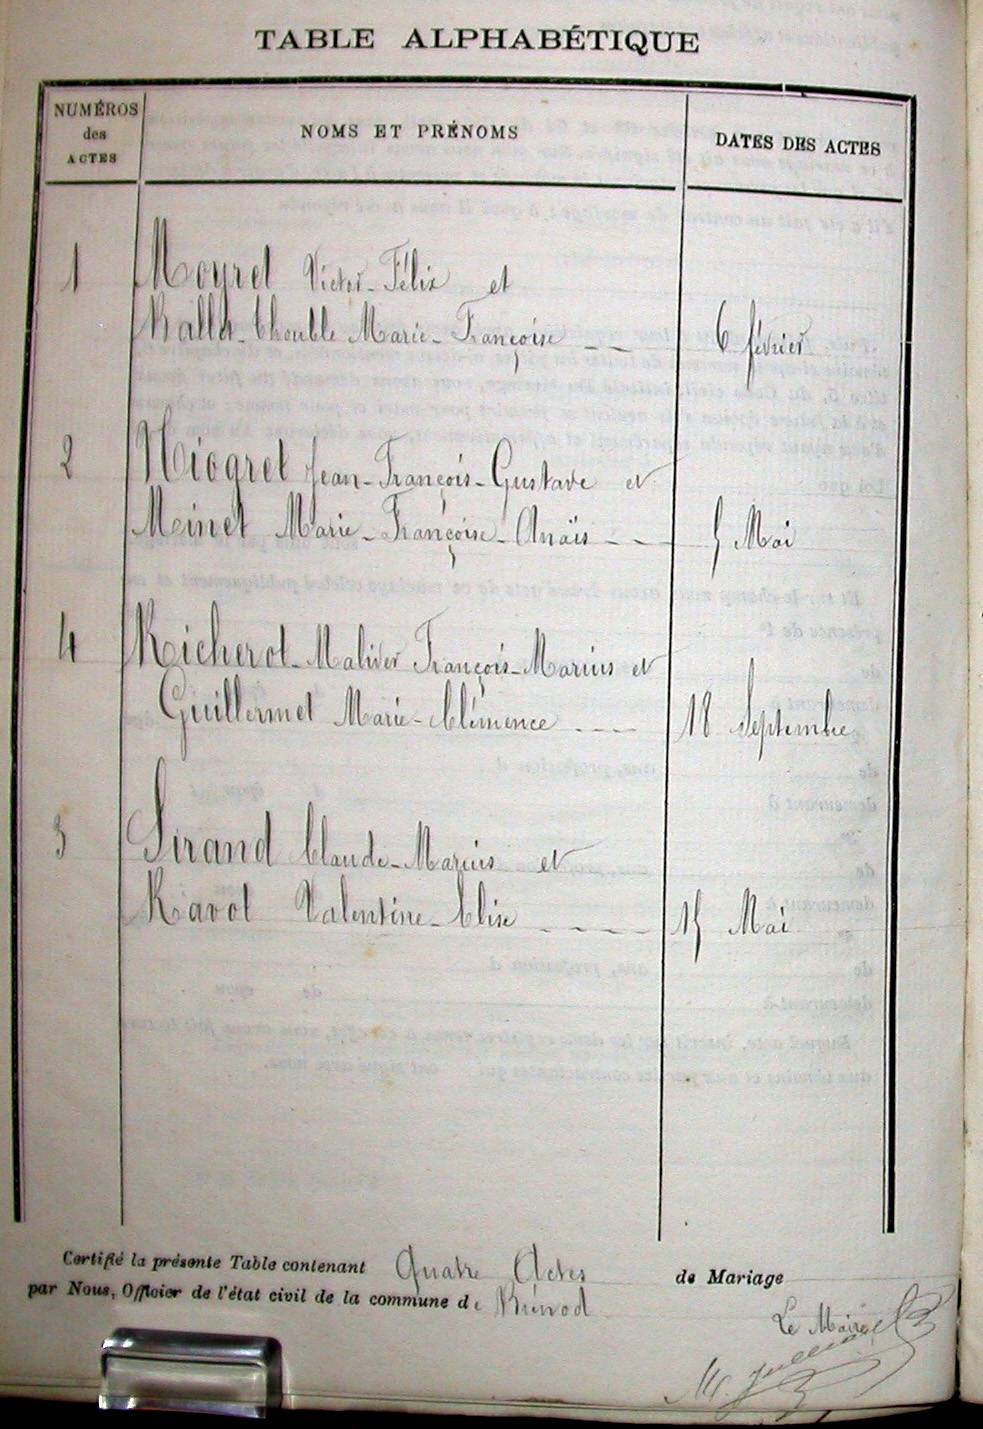 TABLE ALPHABÉTIQUE
NUMÉROS
des
ACTES
NOMS ET PRÉNOMS
DATES DES ACTES
1 Moyret Victor-Félix et
Ballet-Chouble Marie-Françoise 6 février
2 Niogret Jean-François-Gustave et
Moinet Marie-Françoise-Anaïs 5 Mai
4 Richerot-Malivier François-Marius et
Guillermet Marie-Clémence 18 Septembre
3 Sirand Claude-Marius et
Ravot Valentine-Elise 15 Mai
Certifié la présente Table contenant Quatre Actes de Mariage
par Nous, Officier de l'état civil de la commune de Brénod
Le Maire